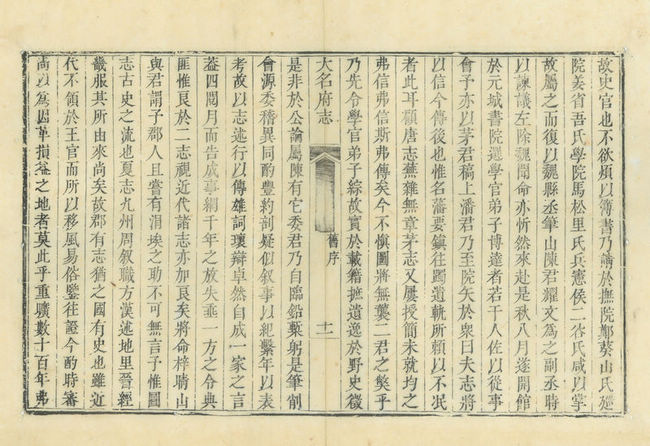 故史官也不欲煩以簿書乃請於撫院鄭葵山氏廵
院姜省吾氏學院馬松里氏兵憲侯二谷氏咸以掌
故屬之而復以魏縣丞筆山陳君耀文為之嗣丞時
以諫議左除魏聞命亦忻然來赴是秋八月遂開館
於元城書院選學官弟子博達者若干人佐以從事
會予亦以茅君稿上潘君乃至院矢於衆曰夫志將
以信今傳後也惟名藩要鎮往躅遺軌所賴以不泯
者此耳顧唐志蕪雜無章茅志又屢授簡未就均之
弗信弗信斯弗傳矣今不愼圖將無襲二君之獘乎
乃先令學官弟子綜故實於載籍摭遺逸於野史徵
大名府志
舊序
十一
是非於公論屬陳有它委君乃自臨鉛槧躬是筆削
會源委稽異同酌豐約剖疑似叙事以紀繫年以表
考故以志述行以傳雄詞瓌辯卓然自成一家之言
葢四閱月而告成事網千年之放失垂一方之令典
匪惟艮於二志視近代諸志亦加艮矣將命梓晴山
與君謂予郡人且嘗有涓埃之助不可無言予惟圖
志古史之流也夏志九州周叙職方漢述地里晉經
畿服其所由來尚矣故郡有志猶之國有史也雖近
代不領於王官而所以移風易俗鑒往證今酌時審
尚以為因革損益之地者莫此乎重曠數十百年弗